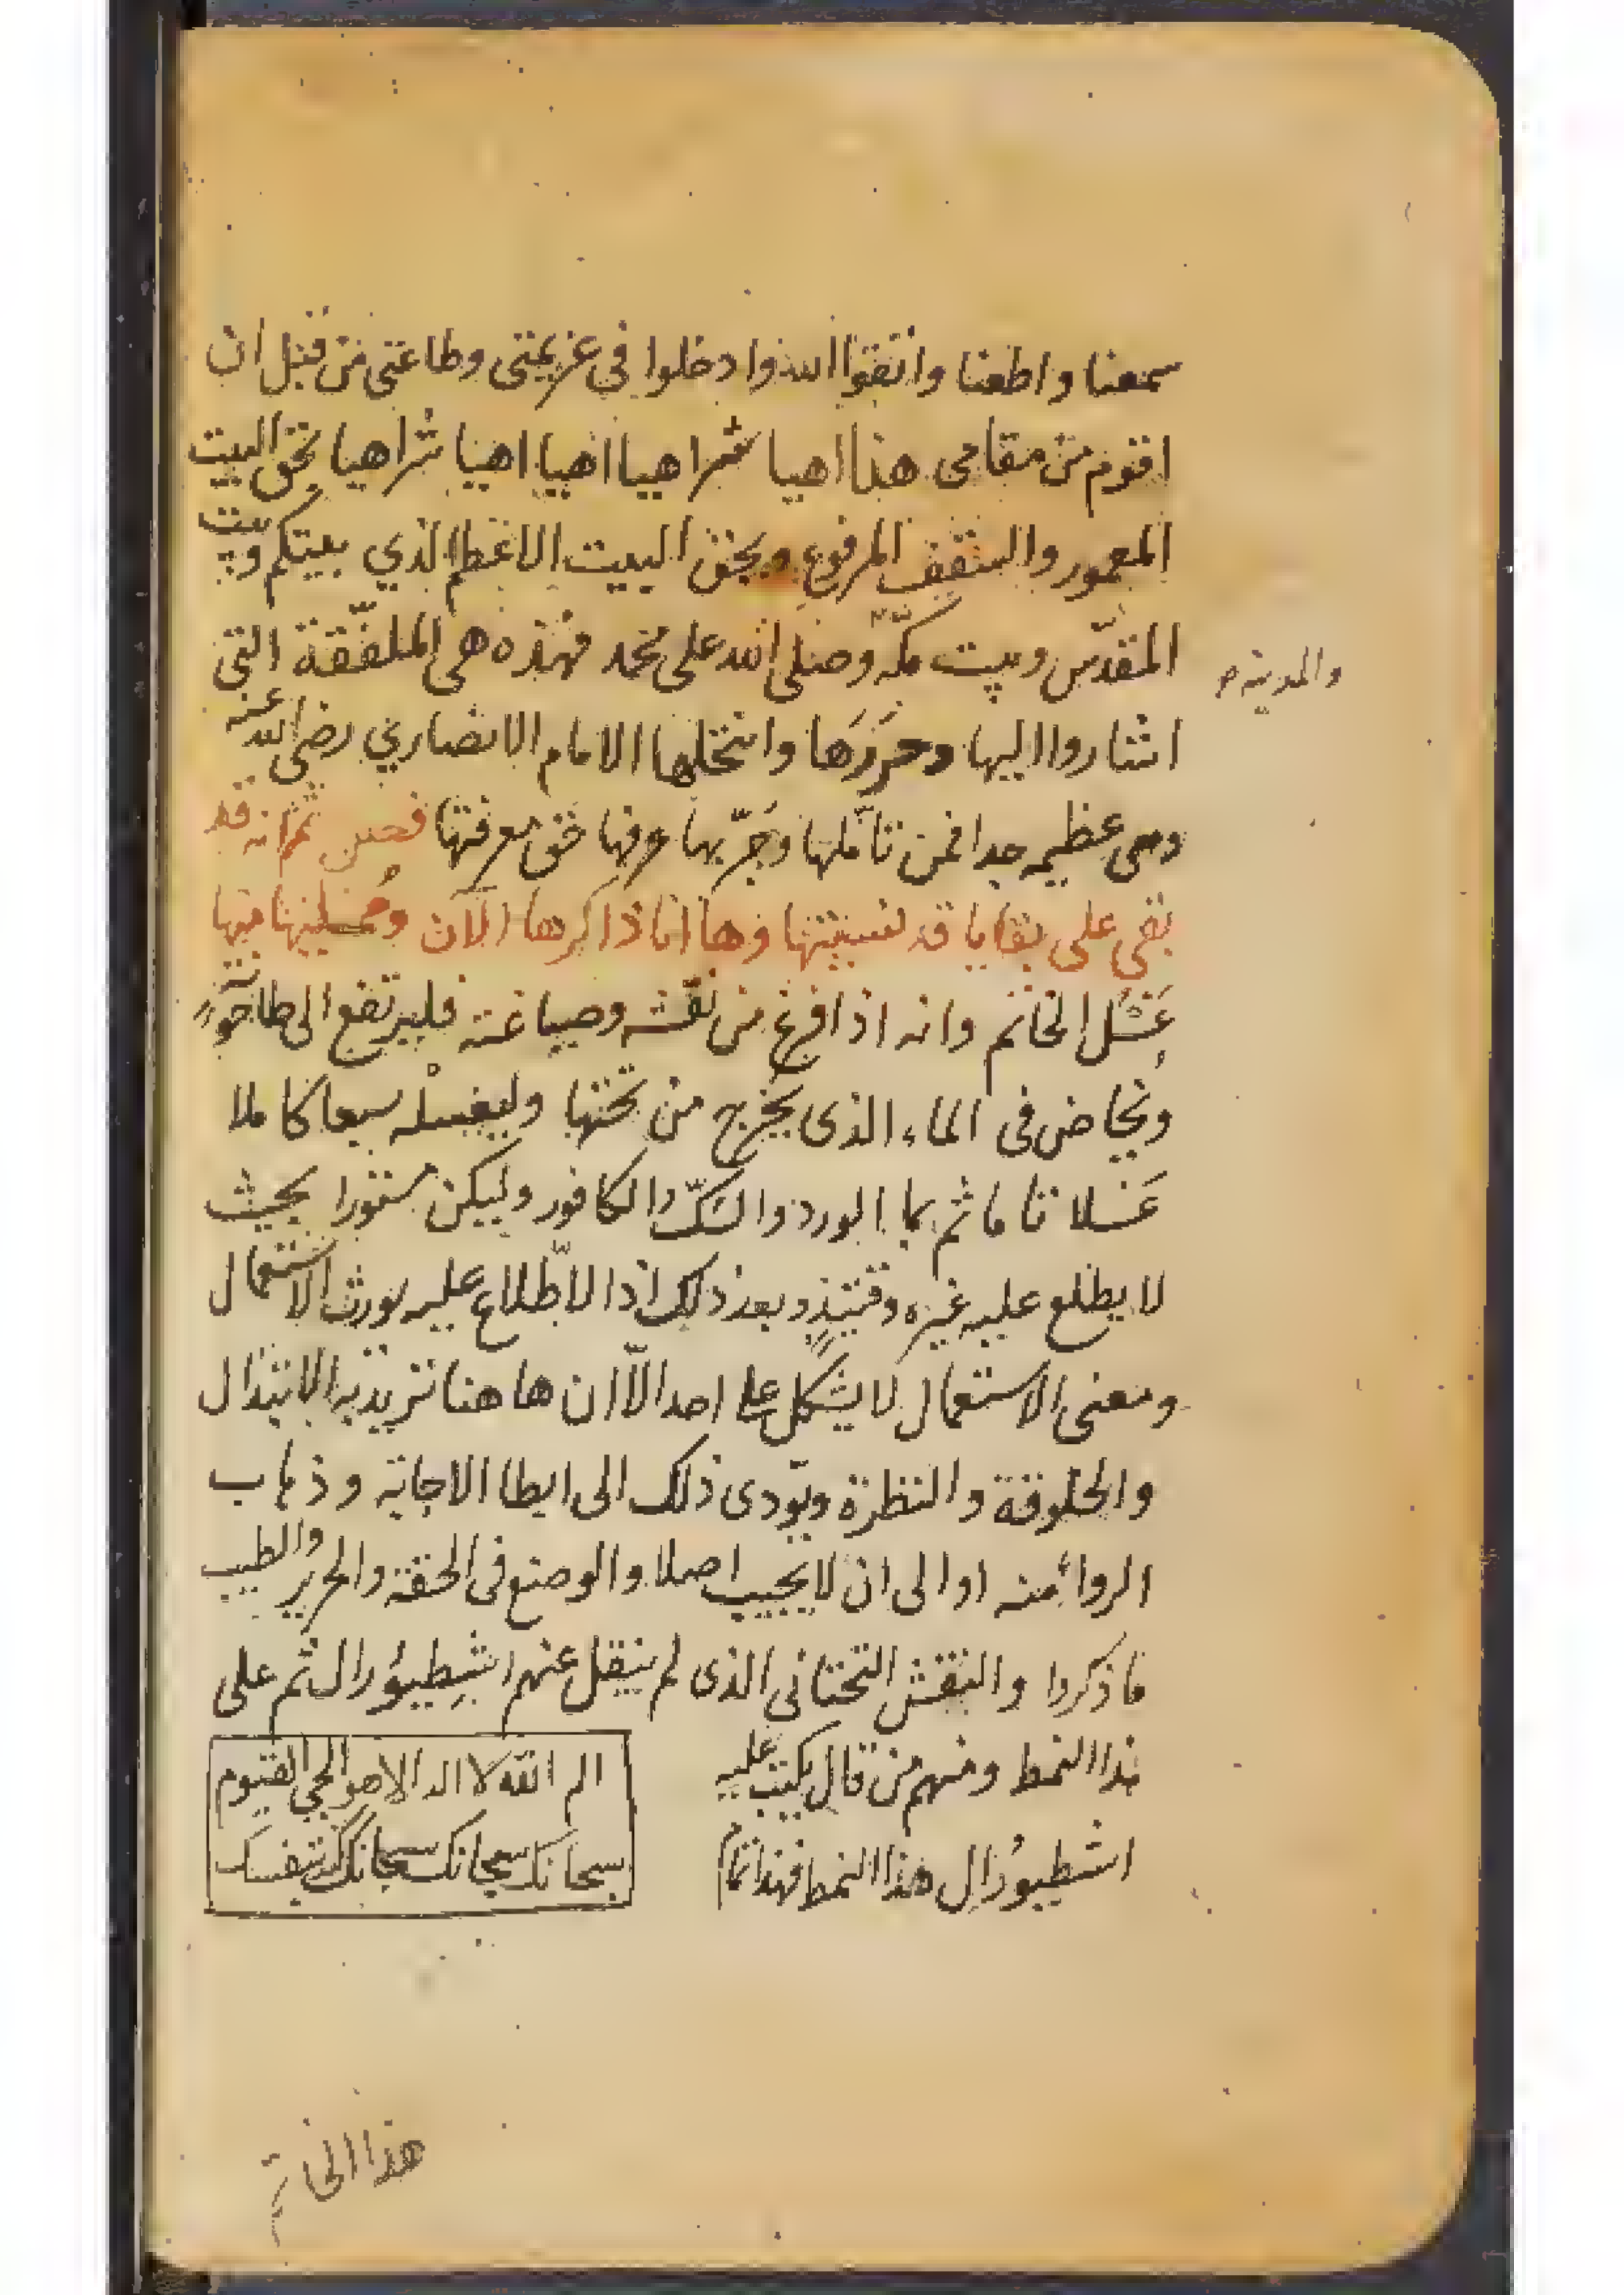 سمعنا واطعنا واتقوا الله وادخلوا في عزيمتى وطاعتى من قبل ان
اقوم من مقامى هذا اهيا شراهيا اهيا اهيا شراهيا بحق البيت
المعمور والسقف المرفوع وبحق البيت الاعظم الذي بيتكم وبيت
المقدّس وبيت مكّة وصلى الله على محمد فهذه هى الملفّقة التى
والمدينة
اشاروا اليها وحررها وانتخلها الامام الانصاري رضى الله عنه
وهى عظيمه جدا فمن تأملها وجَرّبها عرفها حق معرفتها فحسن ثم انه قد
بقى على بقايا قد نسيتها وها انا ذاكرها الآن منها
غسْل الخاتم وانه اذا فرغ من نقشه وصياغته فليرتفع الى طاحونة
ويخاض فى الماء الذى يخرج من تحتها وليغسله سبعا كاملا
غسلا تاما ثم بما الورد والمسك والكافور وليكن مستورا بحيث
لا يطلع عليه غيره وقتيذٍ وبعد ذلك اذا الاطّلاع عليه يورث الاستعمال
ومعنى الاستعمال لا يشكل على احد الاّ ان هاهنا نريد به الابتذال
والخلوقة والنظرة ويؤدى ذلك الى ابطا الاجابة وذهاب
الروا منه او الى ان لا يجيب اصلا والوضع فى الحقة والحرير والطيب
ما ذكروا والنقش التحتانى الذى لم ينقل عنهم اشطيبؤرال ثم على
هذا النمط ومنهم من قال يكتب عليه
اشطيبؤرال هذا النمط فهذا تمام
الم الله لا اله الا هو الحي القيوم
سبحانك سبحانك سبحانك بنفسك
هذا الخاتم